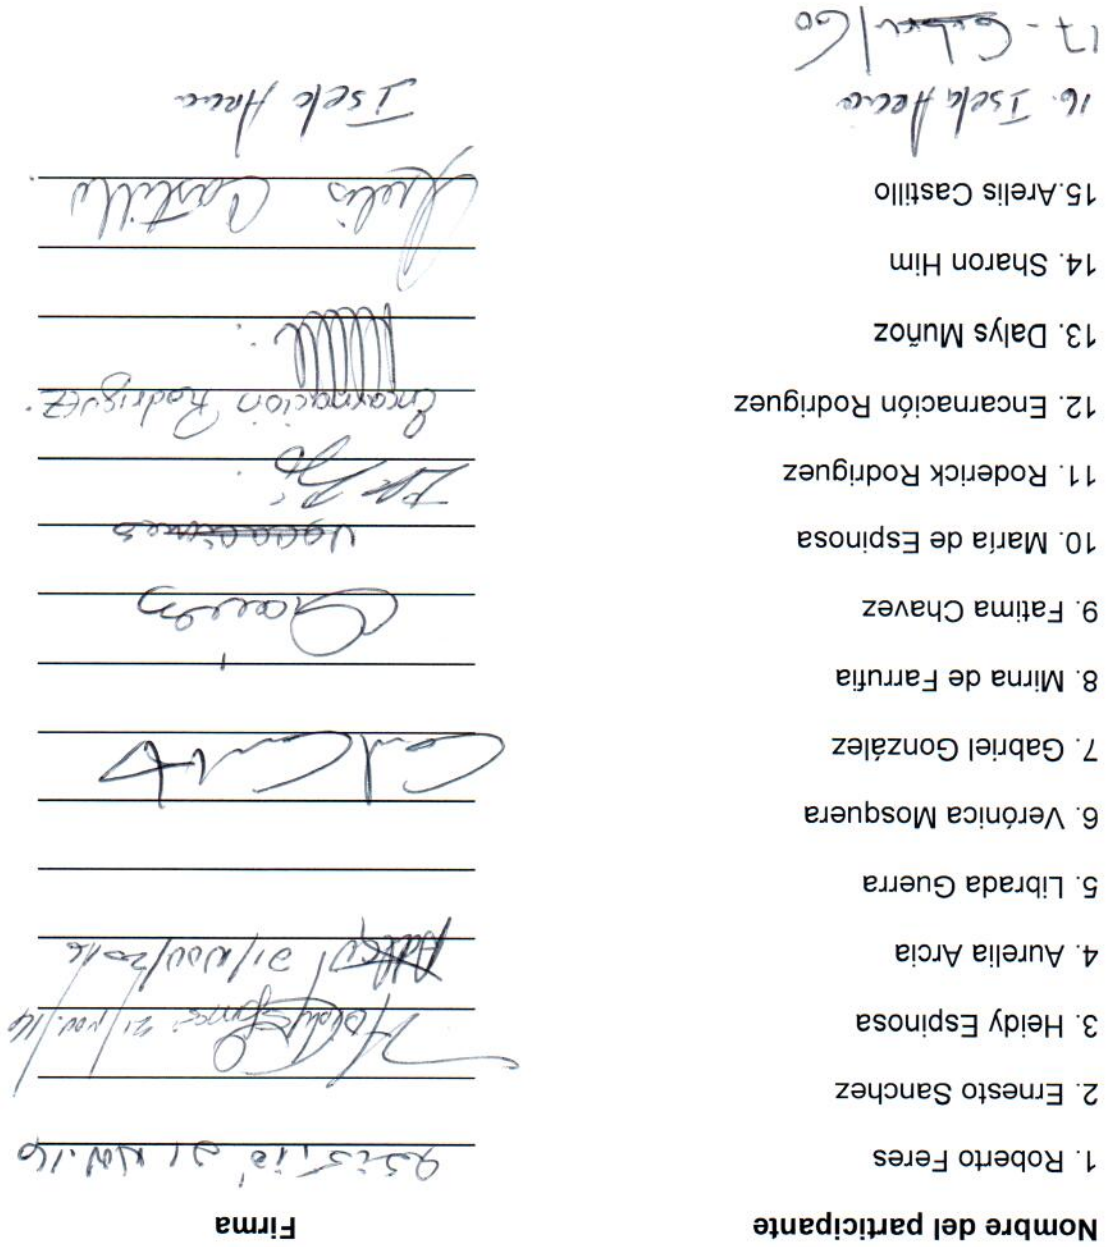 Nombre del participante Firma
1. Roberto Feres asistió 21 NOV. 16
2. Ernesto Sanchez
3. Heidy Espinosa 21/nov./16
4. Aurelia Arcia 21/nov/2016
5. Librada Guerra
6. Verónica Mosquera
7. Gabriel González
8. Mirna de Farrufia
9. Fatima Chavez
10. María de Espinosa vacaciones
11. Roderick Rodriguez
12. Encarnación Rodriguez Encarnación Rodriguez.
13. Dalys Muñoz
14. Sharon Him
15.Arelis Castillo Arelis Castillo.
16. Isela
17-